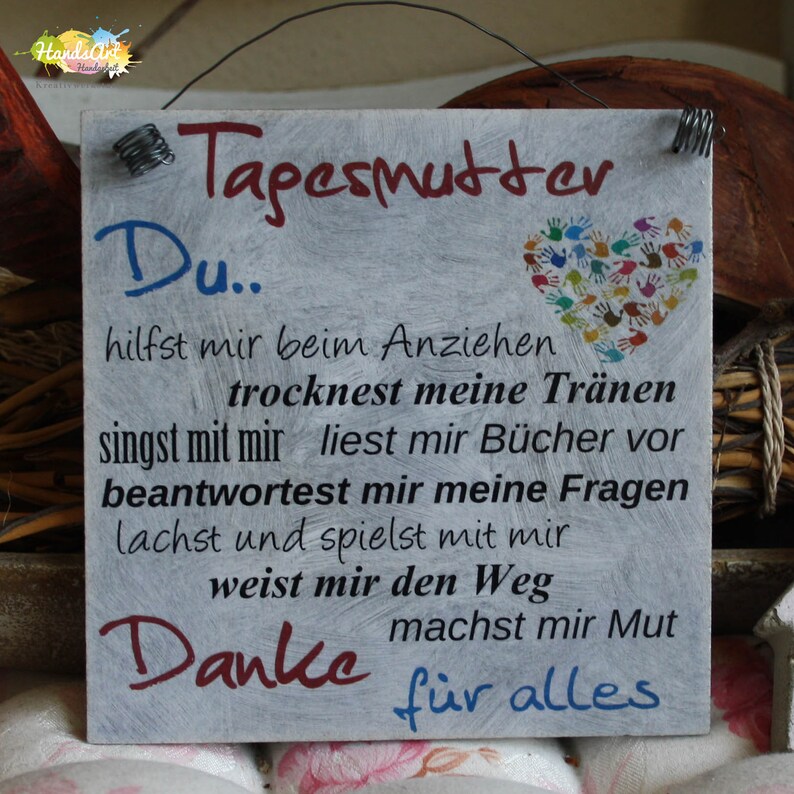 HandsArt
Handarbeit
Tagesmutter
Du..
hilfst mir beim Anziehen
trocknest meine Tränen
singst mit mir liest mir Bücher vor
beantwortest mir meine Fragen
lachst und spielst mit mir
weist mir den Weg
machst mir Mut
Danke
für alles